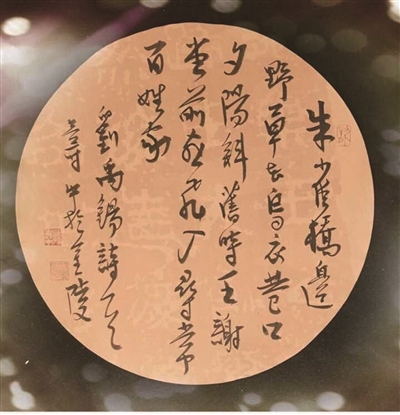 朱雀橋邊
野草花烏衣巷口
夕陽斜舊時王謝
堂前燕飛入尋常
百姓家
劉禹錫詩
書於金陵